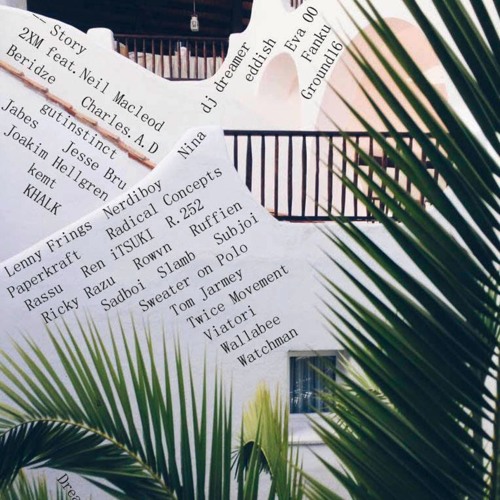 Story
2XM feat.Neil Macleod
Beridze Charles.A.D
gutinstinct
Jabes Jesse Bru
Joakim Hellgren
kemt
KHALK
Nina
dj dreamer
eddish
Eva 00
Fanku
Ground16
Lenny Frings Nerdiboy
Paperkraft Radical Concepts
Rassu Ren iTSUKI R.252
Ricky Razu Rowvn Ruffien
Sadboi Slamb Subjoi
Sweater on Polo
Tom Jarmey
Twice Movement
Viatori
Wallabee
Watchman